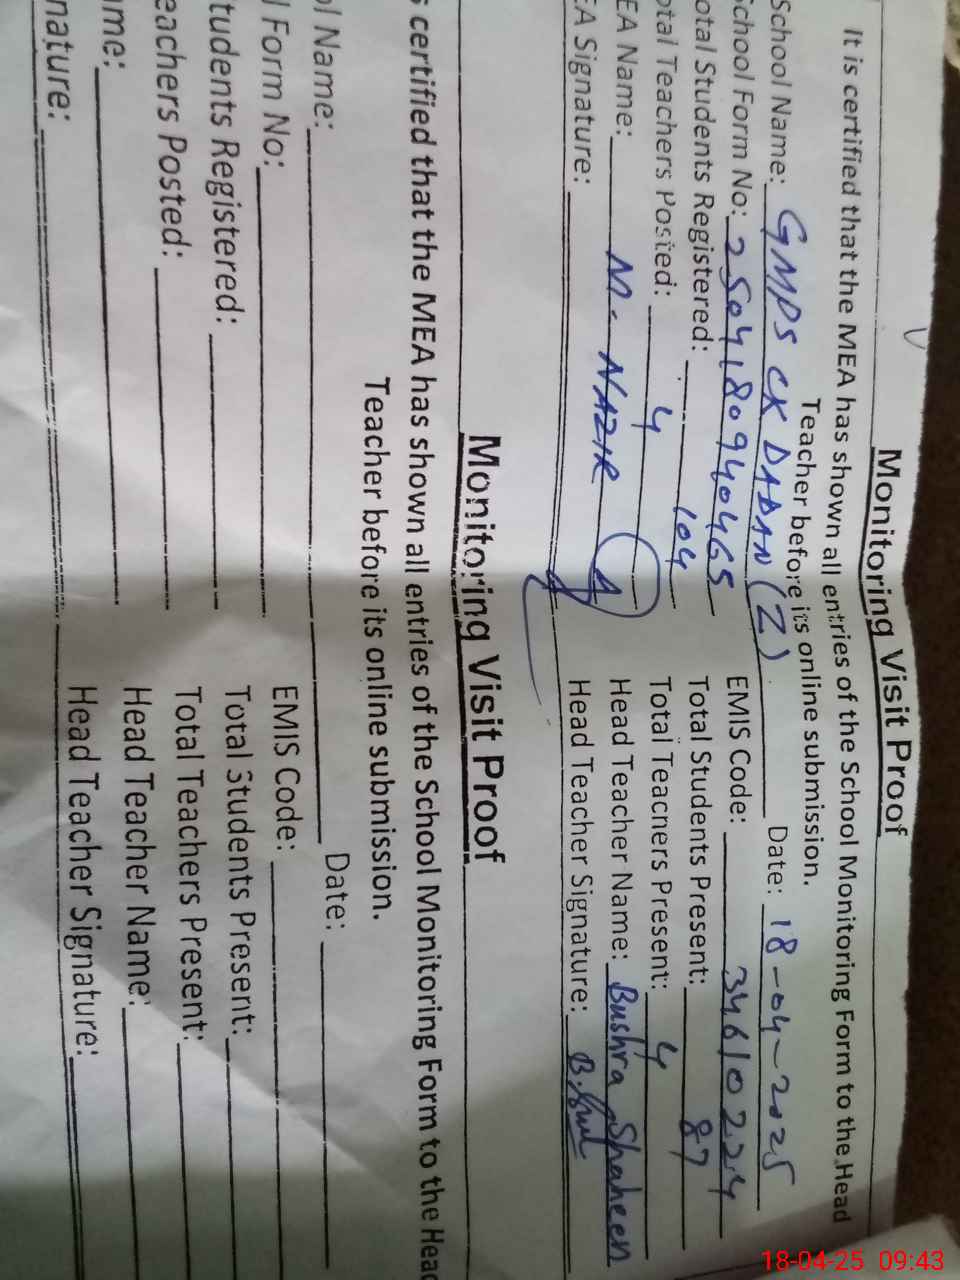 Monitoring Visit Proof
It is certified that the MEA has shown all entries of the School Monitoring Form to the Head
Teacher before its online submission.
School Name: GMPS CK DADAN (Z) Date: 18-04-2025
School Form No: 2504180940465 EMIS Code: 34610224
otal Students Registered: 104 Total Students Present: 87
otal Teachers Posted: 4 Total Teachers Present: 4
EA Name: M. NAZIR (A) Head Teacher Name: Bushra Shaheen
EA Signature: Head Teacher Signature:
Monitoring Visit Proof
s certified that the MEA has shown all entries of the School Monitoring Form to the Head
Teacher before its online submission.
ol Name: Date:
l Form No: EMIS Code:
tudents Registered: Total Students Present:
eachers Posted: Total Teachers Present:
ame: Head Teacher Name:
nature: Head Teacher Signature:
18-04-25 09:43